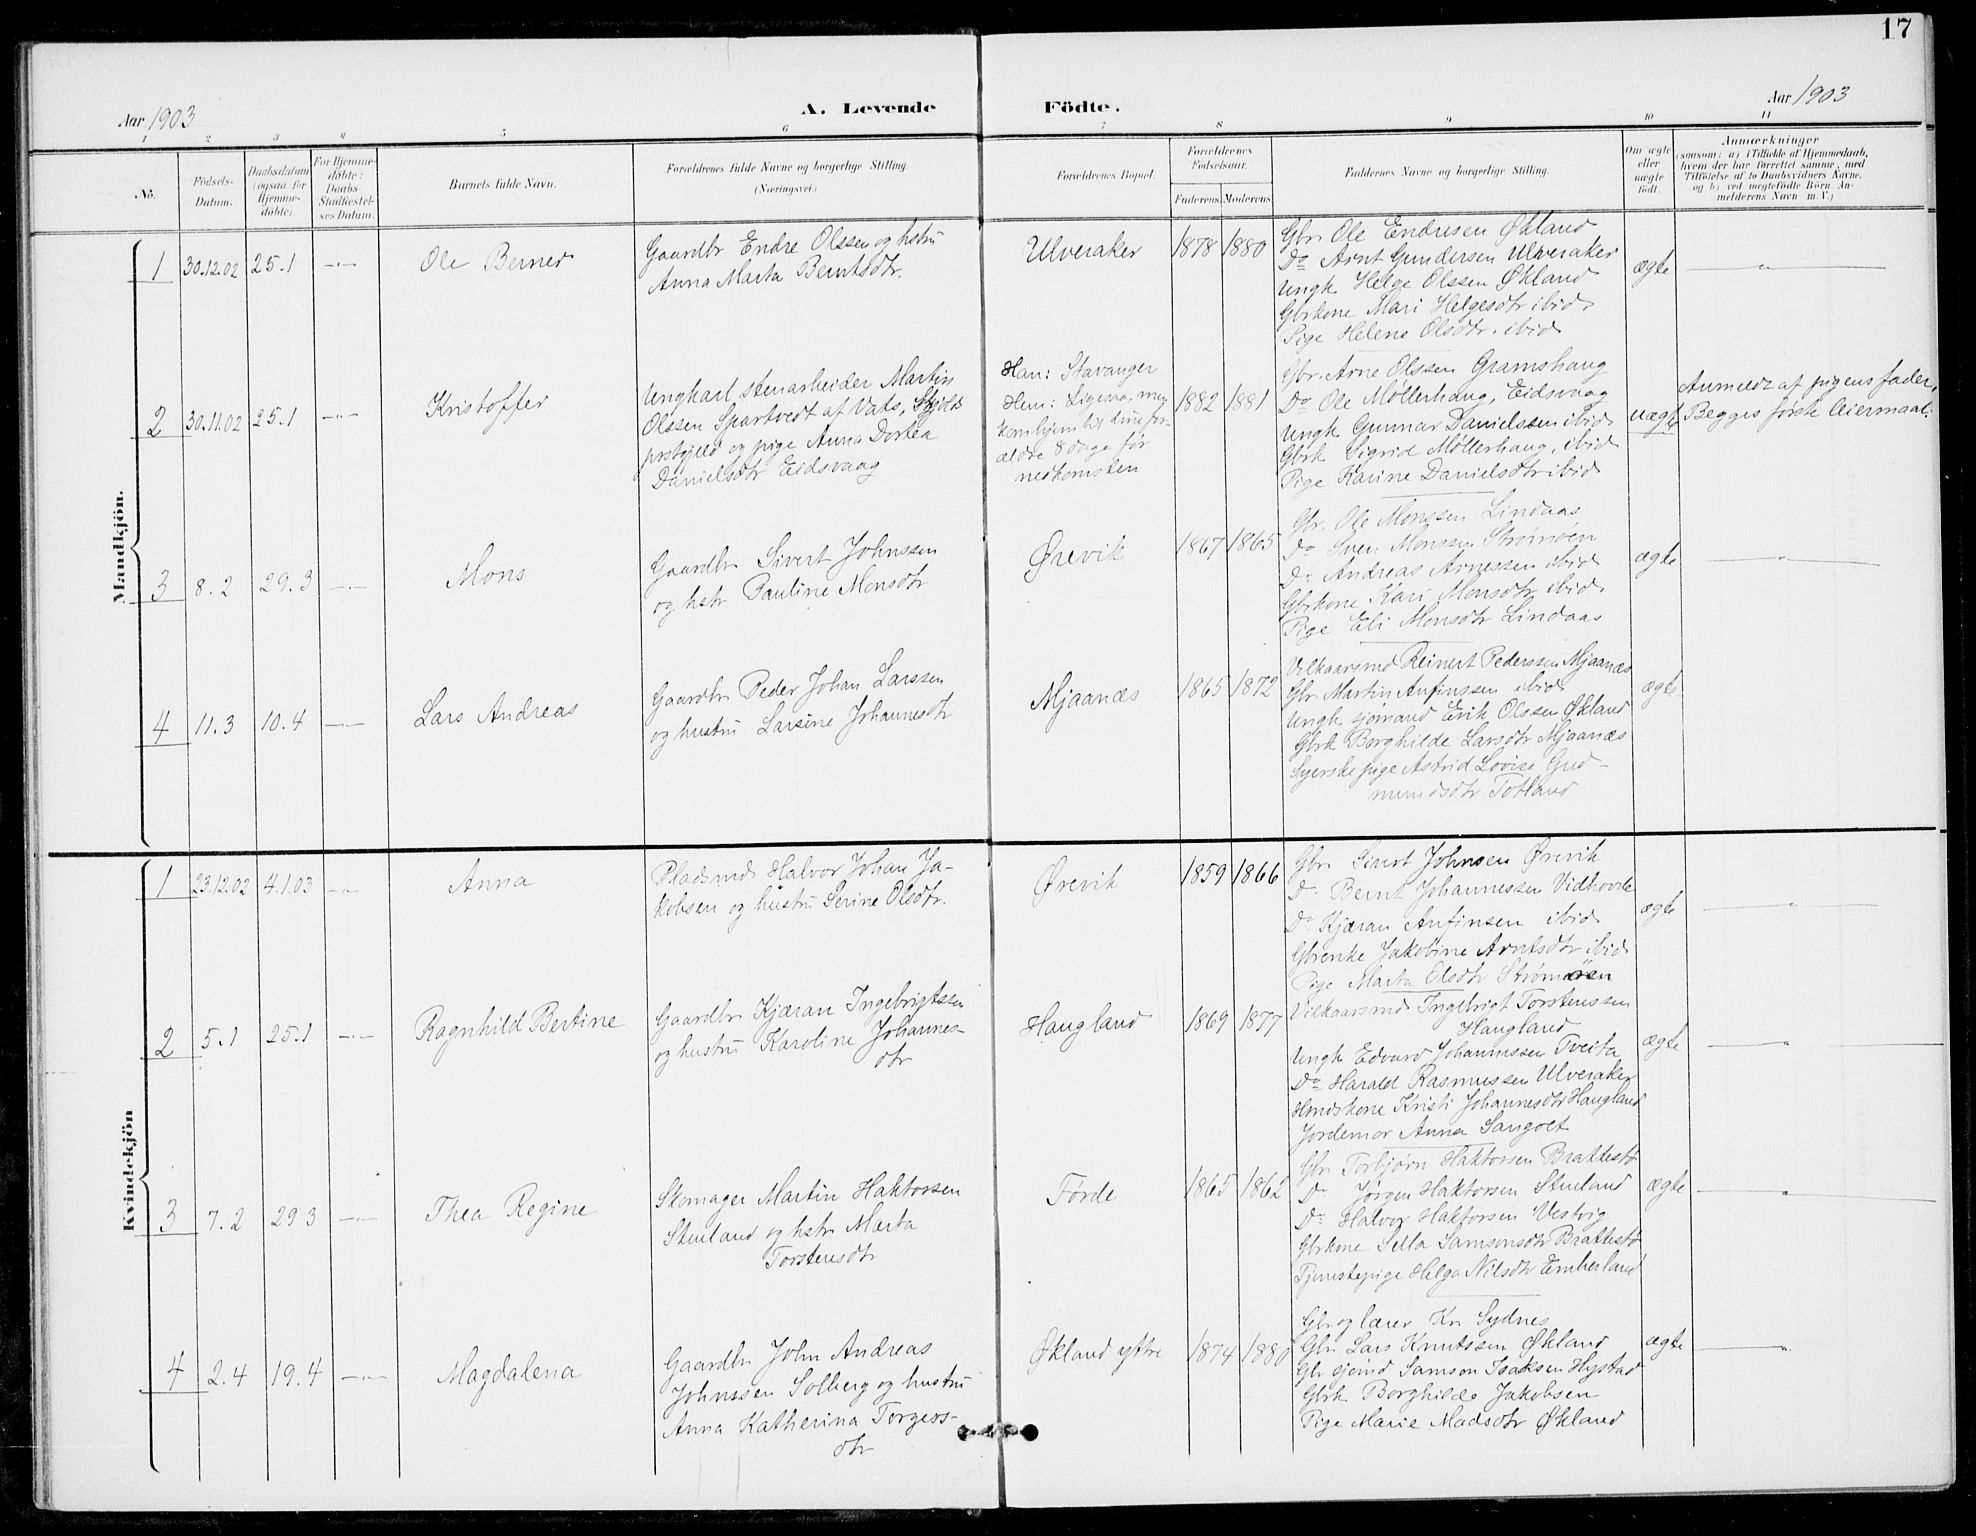 17
Aar 1903
A. Levende
Födte.
Aar 1903
1 2 3 4 5 6 7 8 9 10 11
No.
Födsels-
Datum.
Daabsdatum
(ogsaa for
Hjemme-
döbte).
For Hjemme-
döbte:
Daabs-
Stadfæstel-
ses Datum.
Barnets fulde Navn.
Forældrenes fulde Navne og borgerlige Stilling
(Næringsvei.)
Forældrenes Bopæl.
Forældrenes
Födselsaar.
Faderens. Moderens.
Faddernes Navne og borgerlige Stilling.
Om ægte
eller
uægte
födt.
Anmærkninger
(saasom: a) i Tilfælde af Hjemmedaab,
hvem der har forrettet samme, med
Tilföielse af to Daabsvidners Navne,
og b) ved uægtefödte Börn An-
melderens Navn m. V.)
Mandkjön.
1 30.12.02 25.1 -"-
Ole Berner
Gaardbr Endre Olssen og hstru
Anna Marta Berntsdtr.
Ulveraker
1878 1880
Gbr. Ole Endresen Økland
Do Arnt Gundersen Ulveraker
Ungk Helge Olssen Økland
Gbrkone Mari Helgesdtr ibid.
Pige Helene Olsdtr. ibid
ægte
-"-
2 30.11.02 25.1 -"-
Kristoffer
Ungkarl stenarbeider Martin
Olssen Spartvedt af Vats, Skjolds
prstgjeld og pige Anna Dortea
Danielsdtr Eidsvaag
Han: Stavanger
Hun: Ligesaa, men
kom hjem til sine for-
ældre 8 dage før
nedkomsten
1882 1881
Gbr. Arne Olssen Gramshaug
Do Ole Møllerhaug, Eidsvaag
Ungk Gunnar Danielssen ibid
Gbrk Sigrid Møllerhaug, ibid
Pige Karine Danielsdtr ibid
uægte
Anmeldt af pigens fader.
Begges første leiermaal.
3 8.2 29.3 -"-
Mons
Gaardbr Sivert Johnssen
og hstr. Pauline Monsdtr
Ørevik
1867 1865
Gbr. Ole Monssen Lindaas
Do Sven Monssen Strømøen
Do Andreas Arnessen ibid
Gbrkone Kari Monsdtr ibid.
Pige Eli Monsdtr Lindaas
ægte
-"-
4 11.3 10.4 -"-
Lars Andreas
Gaardbr Peder Johan Larssen
og hustru Larsine Johannesdtr
Mjaanæs
1865 1872
Vilkaarsmd Reinert Pederssen Mjaanæs
Gbr Martin Anfinssen ibid
Ungk sjømand Erik Olssen Økland
Gbrk Borghilde Larsdtr Mjaanæs
Syerske pige Astrid Lovise Gud-
mundsdtr Totland
ægte
Kvindekjön
1 23.12.02 4.1.03 -"-
Anna
Pladsmd Halvor Johan Ja-
kobsen og hustru Serine Olsdtr.
Ørevik
1859 1866
Gbr Sivert Johnsen Ørevik
Do Bernt Johannessen Vidhovde
Do Kjæran Anfinsen ibid
Gbrenke Jakobine Arntsdtr ibid
Pige Marta Olsdtr Strømøen
ægte
-"-
2 5.1 25.1 -"-
Ragnhild Bertine
Gaardbr Kjæran Ingebrigtssen
og hustru Karoline Johannes-
dtr
Haugland
1869 1877
Vilkaarsmd Ingebrigt Torstenssen
Haugland
Ungk Edvard Johannessen Tveita
Do Harald Rasmussen Ulveraker
Hmdskone Kristi Johannesdtr Haugland
Jordemor Anna Sangolt
ægte
-"-
3 7.2 29.3 -"-
Thea Regine
Skomager Martin Haktorsen
Stuland og hstr Marta
Torstensdtr
Førde
1865 1862
Gbr Torbjørn Haktorsen Brattestø
Do Jørgen Haktorsen Stuland
Do Halvor Haktorsen Vestvig
Gbrkone Sella Samsonsdtr Brattestø
Tjenestepige Helga Nilsdtr Emberland
ægte
-"-
4 2.4 19.4 -"-
Magdalena
Gaardbr John Andreas
Johnssen Solberg og hustru
Anna Katherina Torgers-
dtr
Økland yttre
1874 1880
Gbr og lærer Kr Sydnes
Gbr Lars Knutssen Økland
Gbr sjømd Samson Isaksen Hystad
Gbrk Borghilde Jakobsen
Pige Marie Madsdtr Økland
ægte
-"-